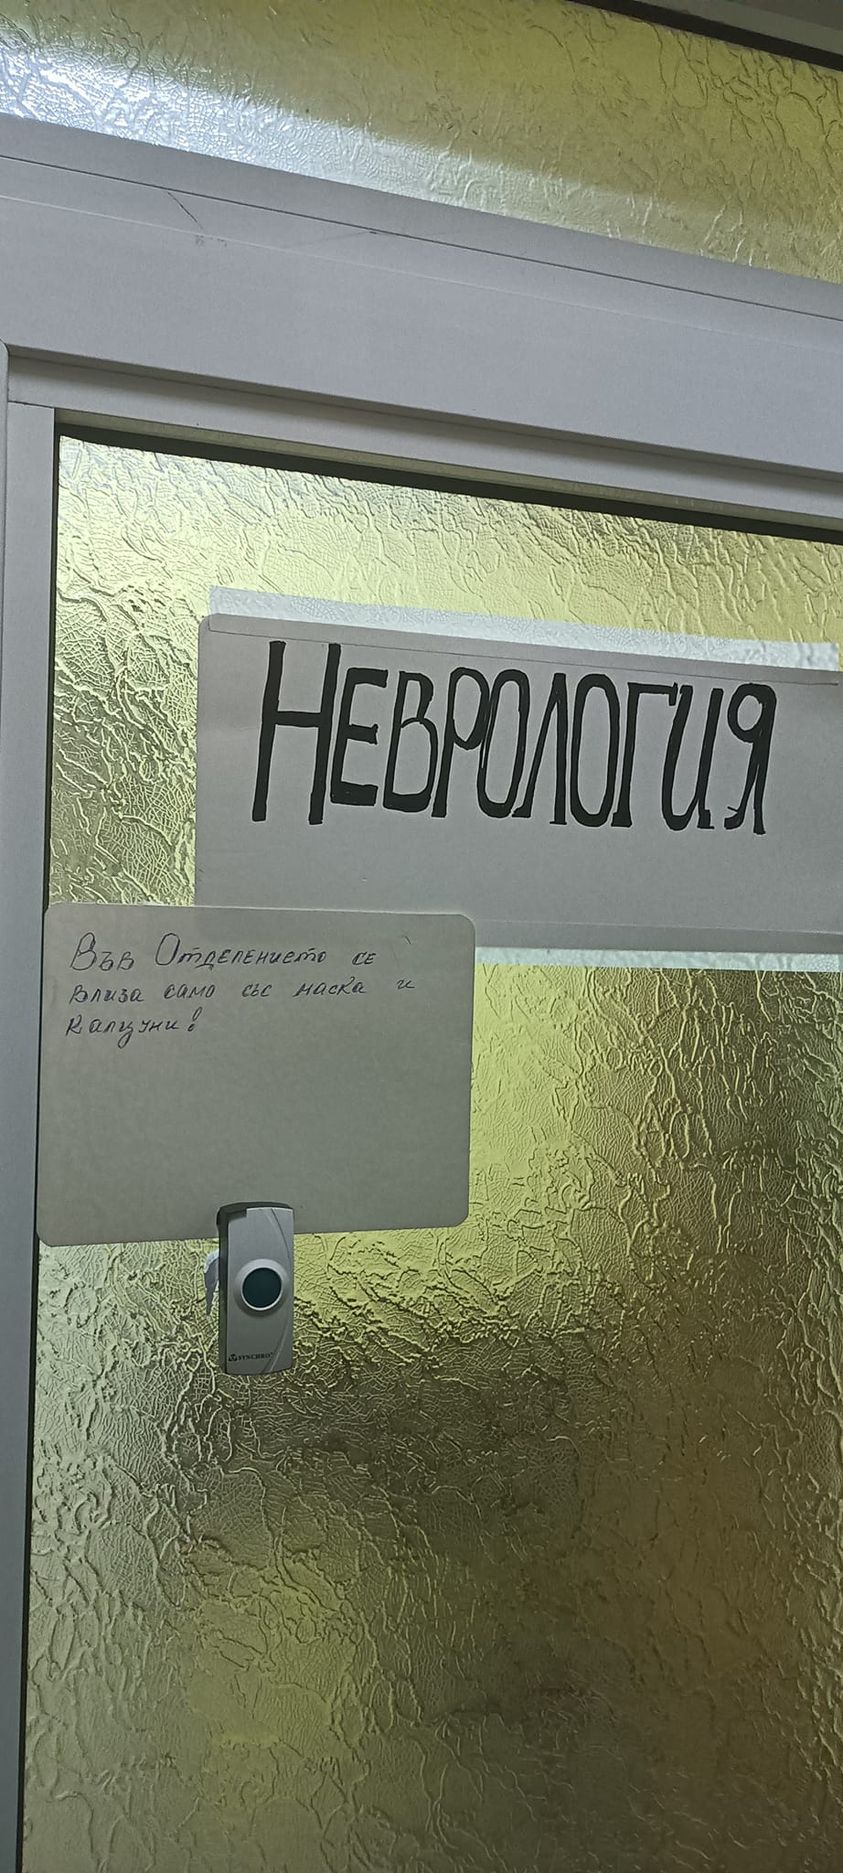 НЕВРОЛОГИЯ
Във Отделението се
влиза само със маска и
калцуни!
SYNCHRO